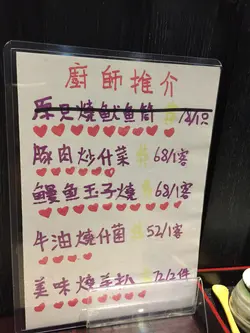 廚師推介
原只燒魷魚筒
豚肉炒什菜 68/1客
鰻魚玉子燒 68/1客
牛油燒什菌 52/1客
美味燒羊扒 72/2件